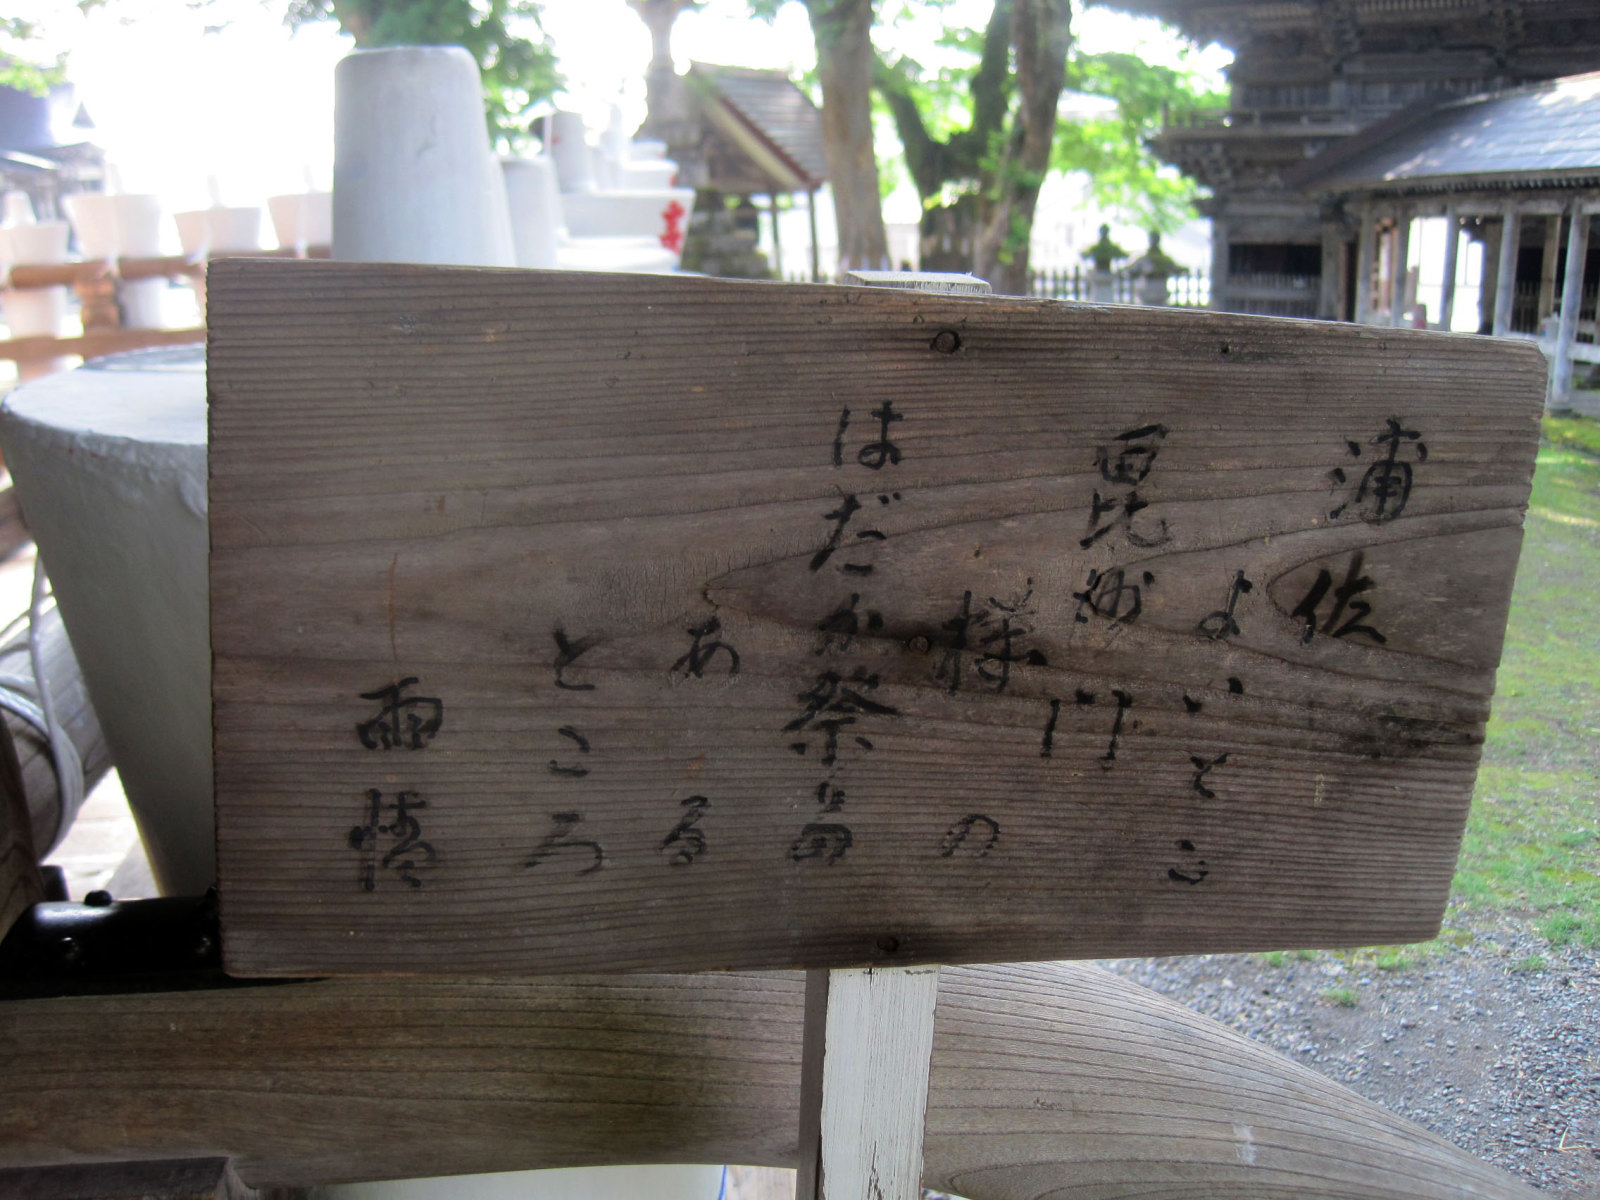 浦佐
よいとこ
毘沙門
様の
はだか祭りの
ある
ところ
雨情